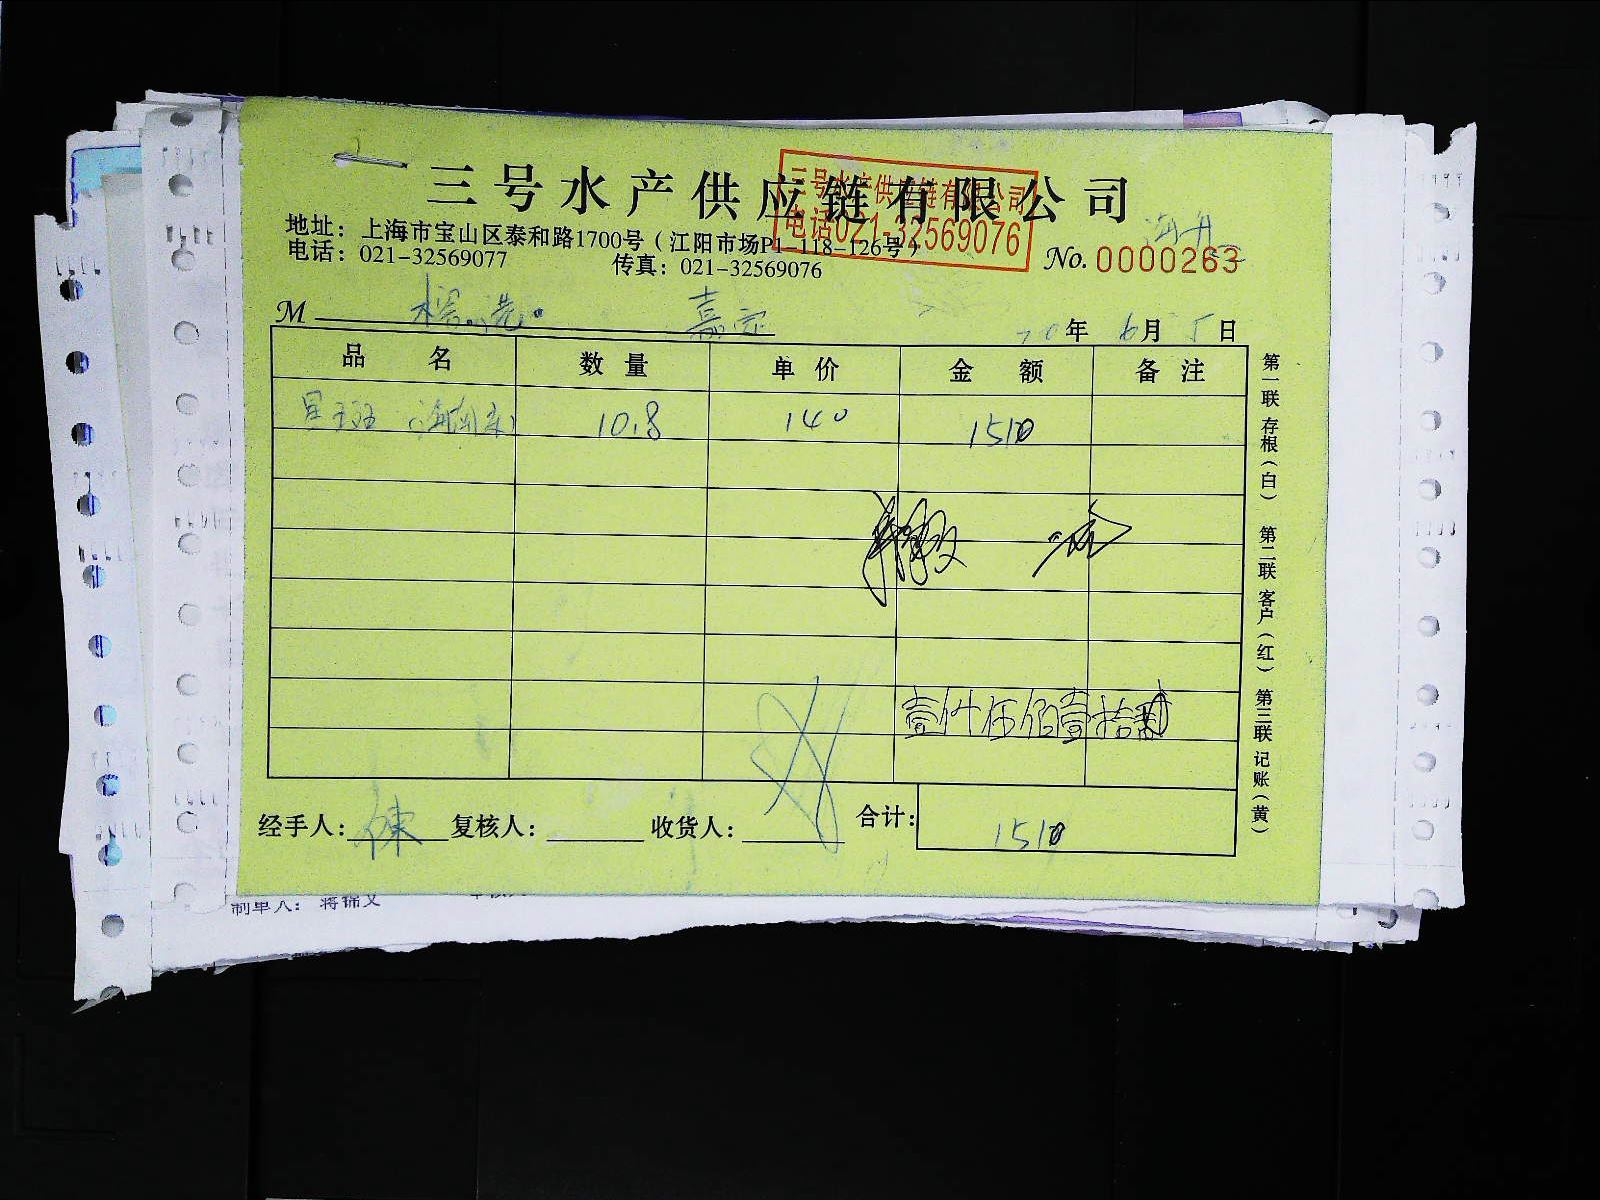 三号水产供应链有限公司
三号水产供应链有限公司
电话021-32569076
地址：上海市宝山区泰和路1700号（江阳市场P1-118-126号）
电话：021-32569077 传真：021-32569076
No. 0000263
M 嘉定 20年 6月 5日
品名 数量 单价 金额 备注
星斑 10.8 140 1510
壹仟伍佰壹拾
经手人：陈 复核人： 收货人： 合计：1510
第一联 存根（白） 第二联 客户（红） 第三联 记账（黄）
制单人： 蒋锦文